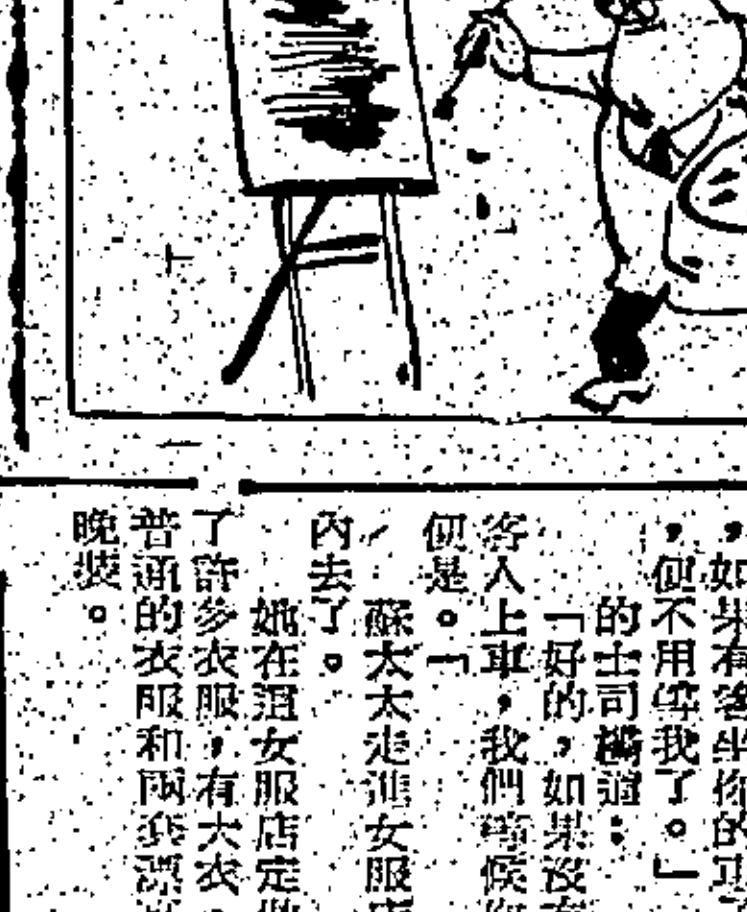 ，如果有客坐你的車
，便不用等我了。」
的士司機道：
「好的，如果沒有
客人上車，我們等候你
便是。」
蘇太太走進女服店
內去了。
她在這女服店定做
了許多衣服，有大衣、
普通的衣服和兩套漂
晚裝。